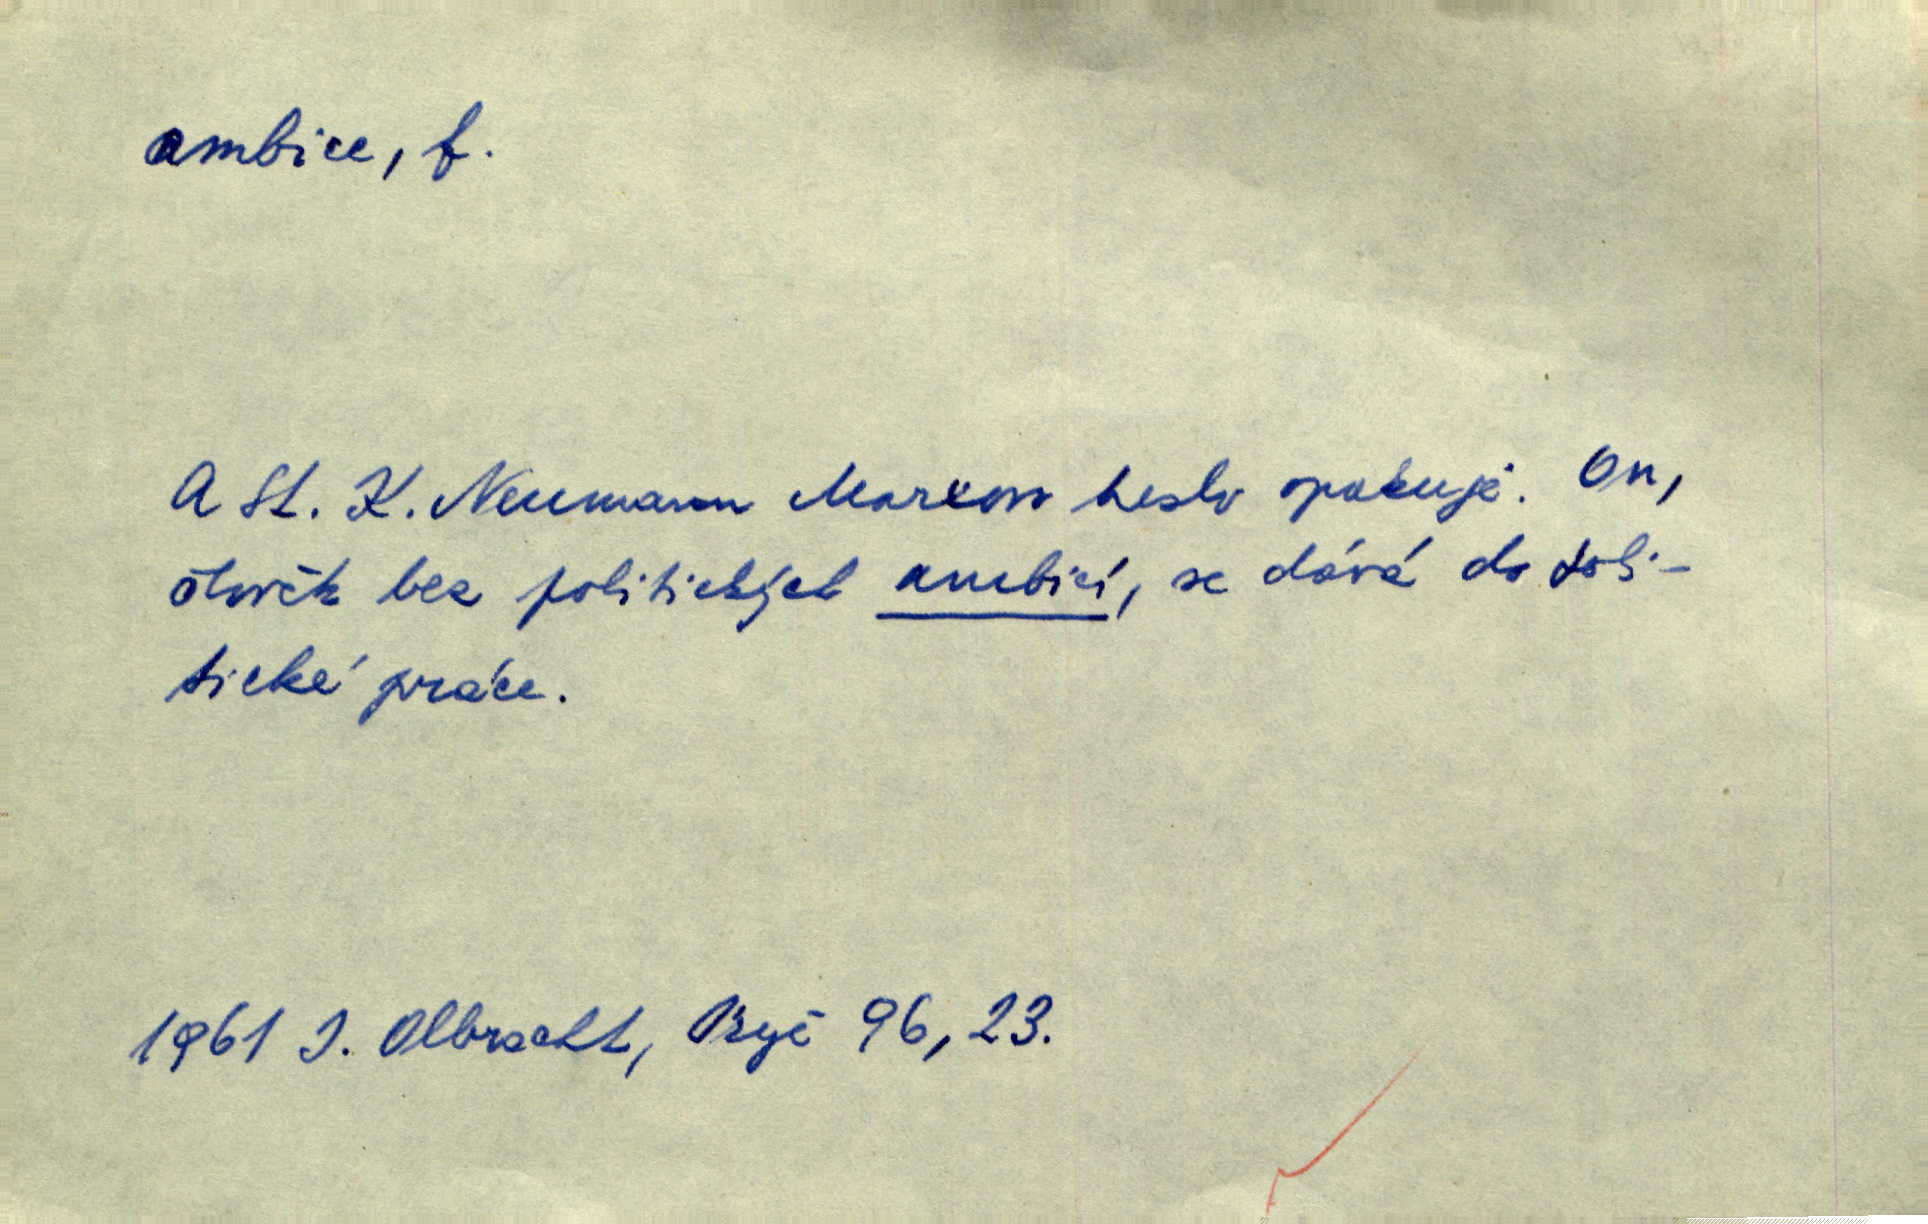 ambice, f.
A St. K. Neumann Marxovo heslo opakuje. On,
člověk bez politických ambicí, se dává do poli-
tické práce.
1961 I. Olbracht, 96, 23.